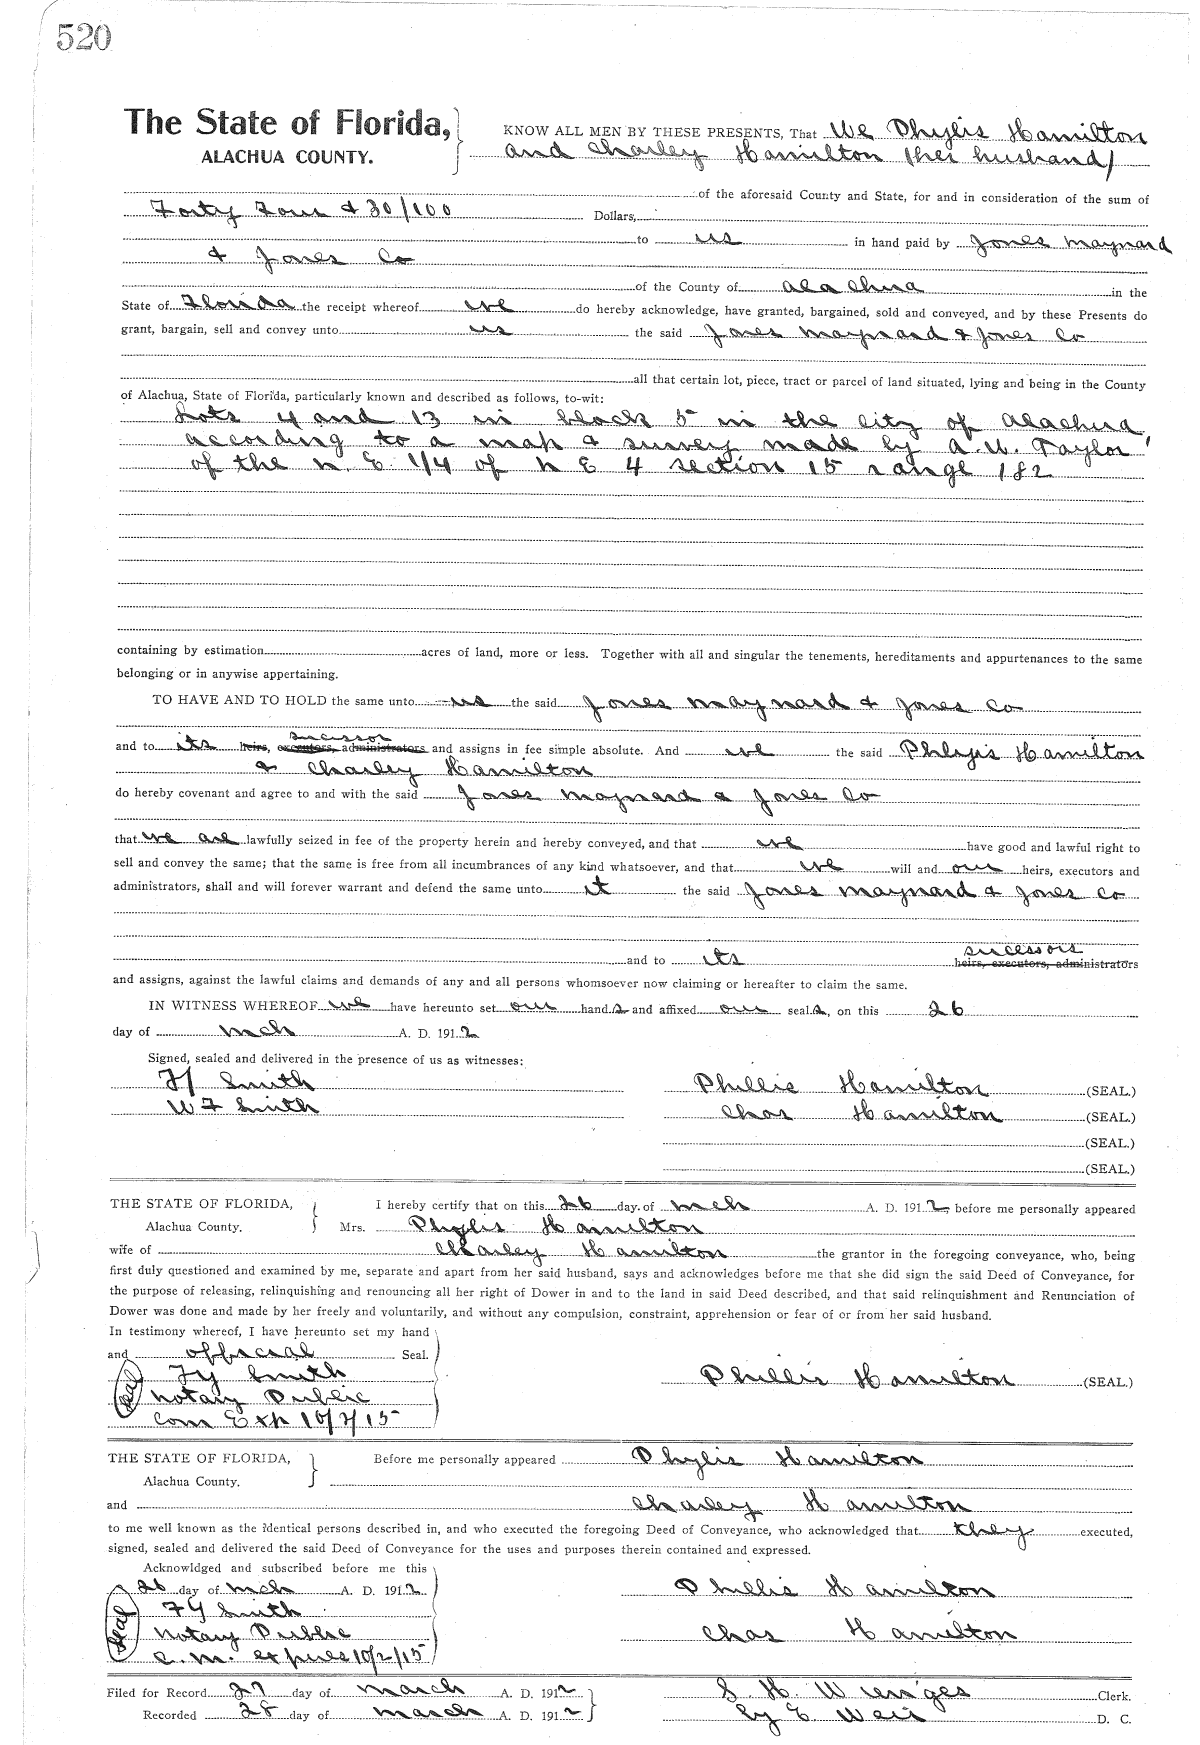 520
The State of Florida, KNOW ALL MEN BY THESE PRESENTS, That We Phylis Hamilton
ALACHUA COUNTY. and Charley Hamilton (her husband)
of the aforesaid County and State, for and in consideration of the sum of
Forty Four & 30/100 Dollars,
to us in hand paid by Jones Maynard
& Jones Co
of the County of Alachua in the
State of Florida the receipt whereof we do hereby acknowledge, have granted, bargained, sold and conveyed, and by these Presents do
grant, bargain, sell and convey unto us the said Jones Maynard & Jones Co
all that certain lot, piece, tract or parcel of land situated, lying and being in the County
of Alachua, State of Florida, particularly known and described as follows, to-wit:
Lots 4 and 13 in block 5 in the city of Alachua,
according to a map & survey made by A.W. Taylor
of the N E 1/4 of N E 4 section 15 range 182
containing by estimation acres of land, more or less. Together with all and singular the tenements, hereditaments and appurtenances to the same
belonging or in anywise appertaining.
TO HAVE AND TO HOLD the same unto us the said Jones Maynard & Jones Co
sucessor
and to its heirs, executors, administrators and assigns in fee simple absolute. And we the said Phlyis Hamilton
& Charley Hamilton
do hereby covenant and agree to and with the said Jones Maynard & Jones Co
that we are lawfully seized in fee of the property herein and hereby conveyed, and that we have good and lawful right to
sell and convey the same; that the same is free from all incumbrances of any kind whatsoever, and that we will and our heirs, executors and
administrators, shall and will forever warrant and defend the same unto it the said Jones Maynard & Jones Co
sucessors
and to its heirs, executors, administrators
and assigns, against the lawful claims and demands of any and all persons whomsoever now claiming or hereafter to claim the same.
IN WITNESS WHEREOF we have hereunto set our hands and affixed our seals, on this 26
day of Mch A. D. 1912
Signed, sealed and delivered in the presence of us as witnesses:
Smith Phillis Hamilton (SEAL.)
W F Smith Chas Hamilton (SEAL.)
(SEAL.)
(SEAL.)
THE STATE OF FLORIDA, I hereby certify that on this 26 day of Mch A. D. 1912, before me personally appeared
Alachua County. Mrs. Phylis Hamilton
wife of Charley Hamilton the grantor in the foregoing conveyance, who, being
first duly questioned and examined by me, separate and apart from her said husband, says and acknowledges before me that she did sign the said Deed of Conveyance, for
the purpose of releasing, relinquishing and renouncing all her right of Dower in and to the land in said Deed described, and that said relinquishment and Renunciation of
Dower was done and made by her freely and voluntarily, and without any compulsion, constraint, apprehension or fear of or from her said husband.
In testimony whereof, I have hereunto set my hand
and official Seal.
Seal Smith Phillis Hamilton (SEAL.)
Notary Public
Com Exp 10/2/15
THE STATE OF FLORIDA, Before me personally appeared Phylis Hamilton
Alachua County.
and Charley Hamilton
to me well known as the identical persons described in, and who executed the foregoing Deed of Conveyance, who acknowledged that they executed,
signed, sealed and delivered the said Deed of Conveyance for the uses and purposes therein contained and expressed.
Acknowldged and subscribed before me this
26 day of Mch A. D. 1912 Phillis Hamilton
Seal Smith
Notary Public Chas Hamilton
expires 10/2/15
Filed for Record 27 day of March A. D. 1912 S. H. Wienges Clerk.
Recorded 28 day of March A. D. 1912 by E. Weir D. C.